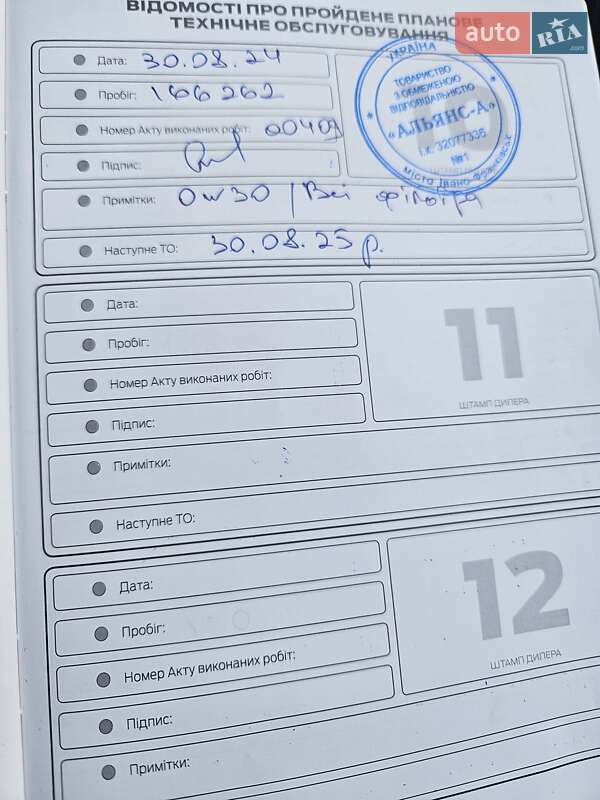 ВІДОМОСТІ ПРО ПРОЙДЕНЕ ПЛАНОВЕ
ТЕХНІЧНЕ ОБСЛУГОВУВАННЯ
auto RIA.com
Дата: 30.08.24
Пробіг: 166262
Номер Акту виконаних робіт: 00409
Підпис:
Примітки: 0w30 / Всі фільтра
Наступне ТО: 30.08.25 р.
УКРАЇНА
ТОВАРИСТВО
З ОБМЕЖЕНОЮ
ВІДПОВІДАЛЬНІСТЮ
«АЛЬЯНС-А»
І.К. 32077336
№1
місто Івано-Франківськ
10
Дата:
Пробіг:
Номер Акту виконаних робіт:
Підпис:
Примітки:
Наступне ТО:
11
ШТАМП ДИЛЕРА
Дата:
Пробіг:
Номер Акту виконаних робіт:
Підпис:
Примітки:
12
ШТАМП ДИЛЕРА